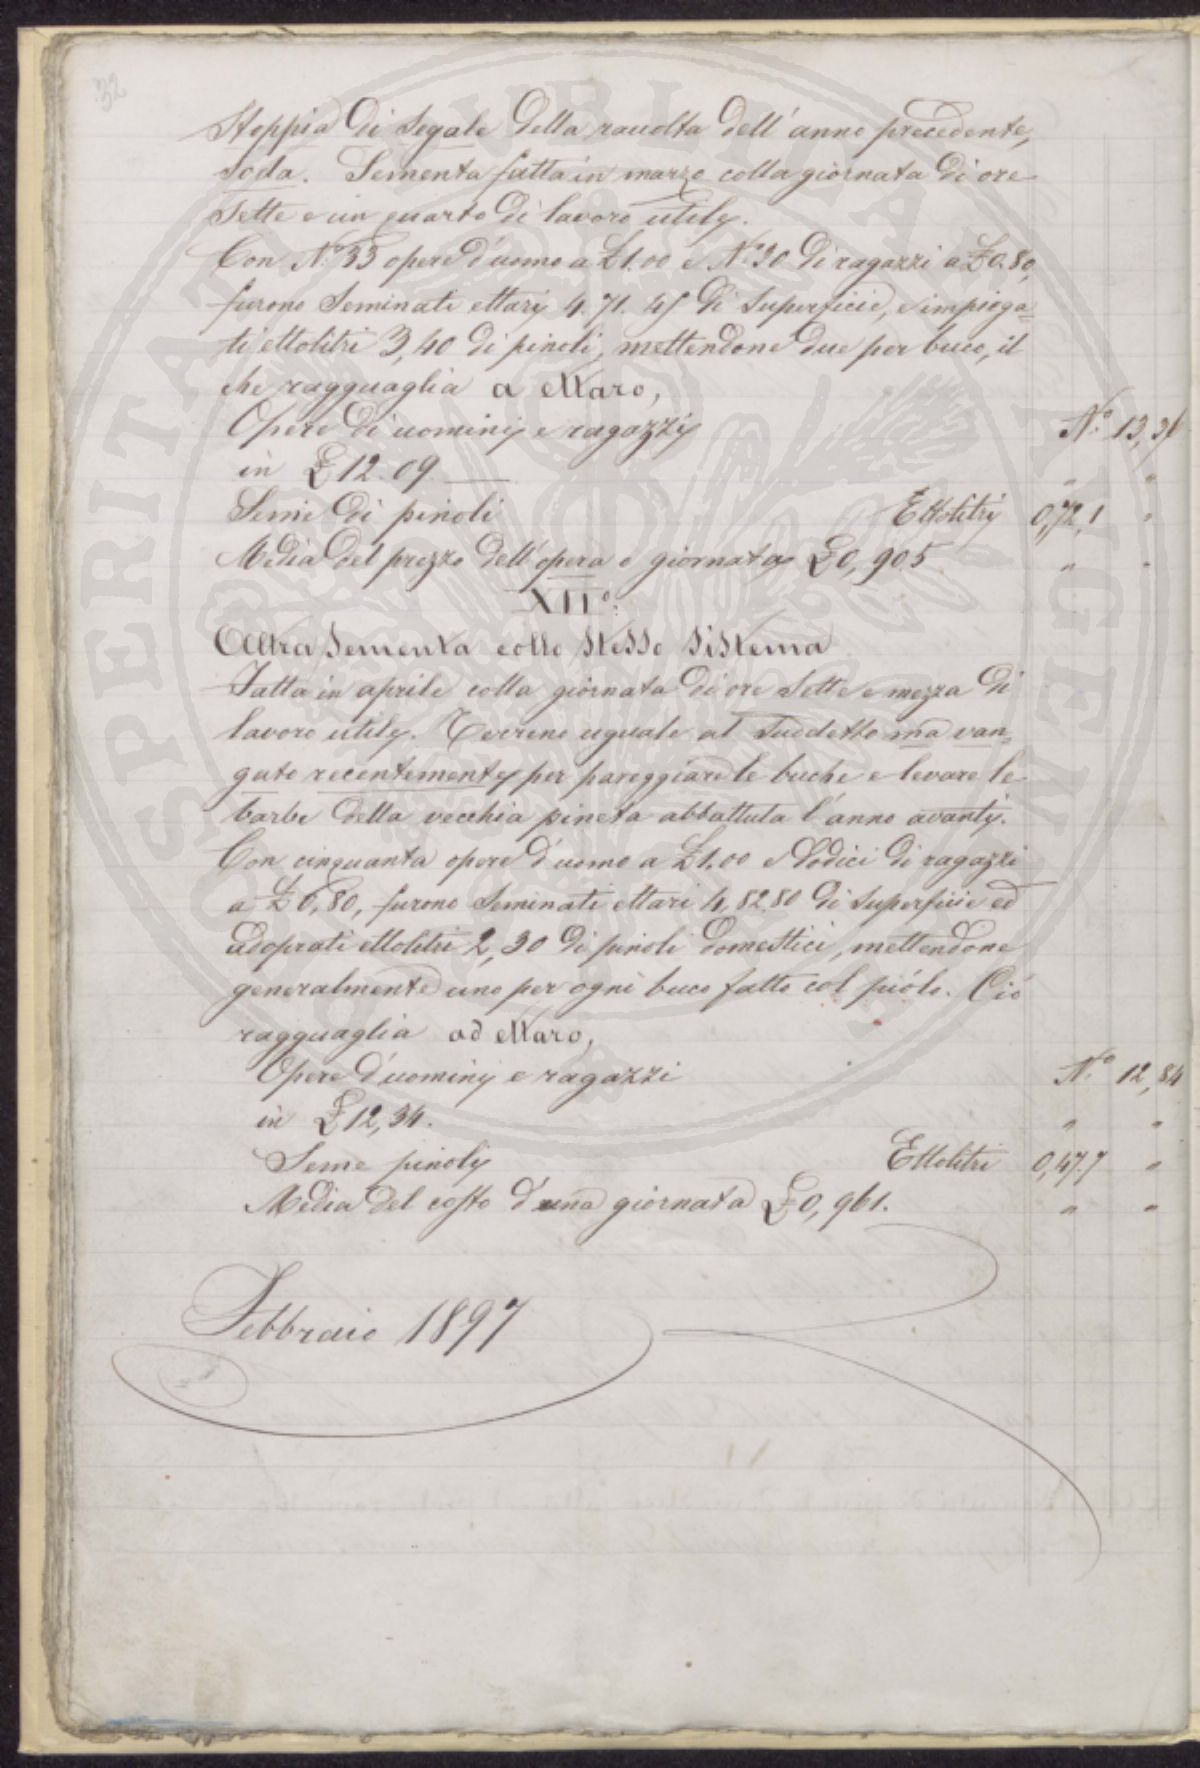 32
Stoppia di segale della raccolta dell'anno precedente,
soda. Sementa fatta in marzo colla giornata di ore
sette e un quarto di lavoro utile.
Con N.º 33 opere d'uomo a £1.00 e N.º 30 di ragazzi a £0.80,
furono seminati ettari 4.71.45 di superficie, e impiega=
ti ettolitri 3,40 di pinoli, mettendone due per buco, il
che ragguaglia a ettaro,
Opere di uomini e ragazzi N.º 13,36
in £12.09 " "
Seme di pinoli Ettolitri 0,72,1 "
Media del prezzo dell'opera o giornata £0,905 " "
XIIº.
Altra sementa collo stesso sistema
Fatta in aprile colla giornata di ore sette e mezza di
lavoro utile. Terreno uguale al suddetto ma van=
gato recentemente per pareggiare le buche e levare le
barbe della vecchia pineta abbattuta l'anno avanti.
Con cinquanta opere d'uomo a £1.00 e dodici di ragazzi
a £0,80, furono seminati ettari 4,82.80 di superficie ed
adoprati ettolitri 2,30 di pinoli domestici, mettendone
generalmente uno per ogni buco fatto col piólo. Ciò
ragguaglia ad ettaro,
Opere d'uomini e ragazzi N.º 12,84
in £12,34. " "
Seme pinoli Ettolitri 0,47.7 "
Media del costo d'una giornata £0,961. " "
Febbraio 1897